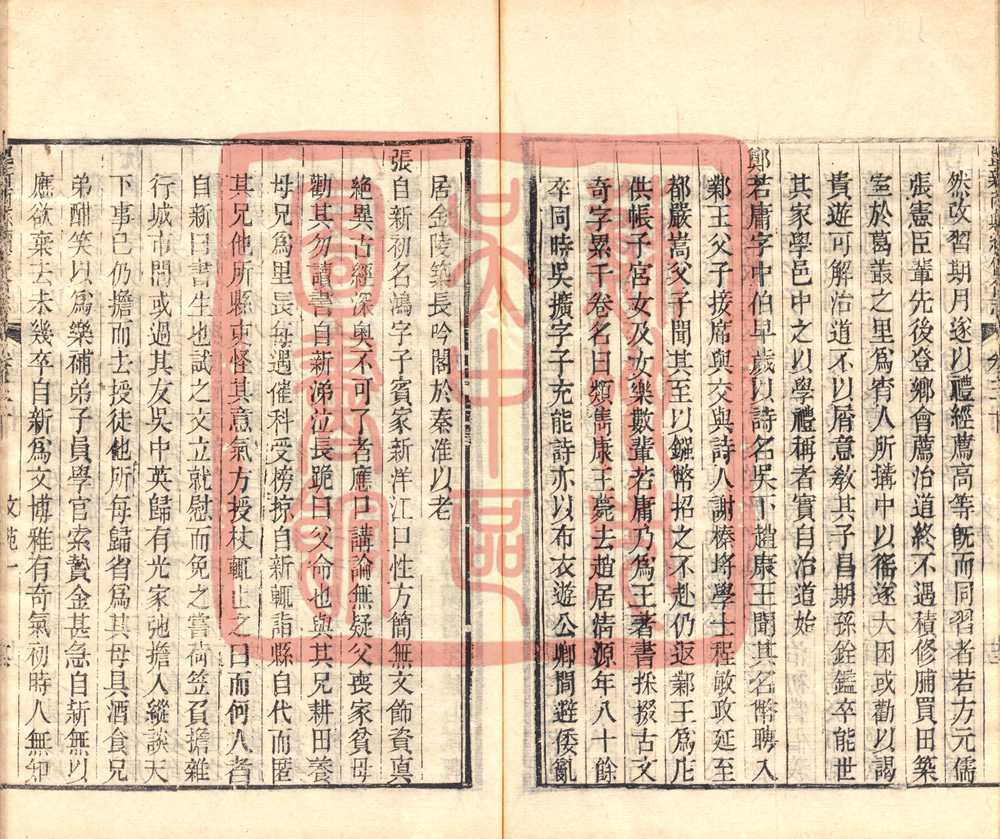 然改習期月遂以禮經薦高等旣而同習者若方元儒
張憲臣輩先後登鄉會薦治道終不遇積修脯買田築
室於葛叢之里爲宵人所搆中以徭遂大困或勸以謁
貴遊可解治道不以屑意敎其子昌期孫銓鑑卒能世
其家學邑中之以學禮稱者實自治道始
鄭若庸字中伯早歲以詩名吳下趙康王聞其名幣聘入
鄴王父子接席與交與詩人謝榛將學士程敏政延至
都嚴嵩父子聞其至以鏹幣招之不赴仍返鄴王爲庀
供帳予宮女及女樂數輩若庸乃爲王著書採掇古文
奇字累千卷名曰類雋康王薨去趙居情源年八十餘
卒同時吳擴字子充能詩亦以布衣遊公卿間避倭亂
居金陵築長吟閣於秦淮以老
張自新初名鴻字子賓家新洋江口性方簡無文飾資眞
絕異古經深奥不可了者應口講論無疑父喪家貧母
勸其勿讀書自新涕泣長跪曰父命也與其兄耕田養
母兄爲里長每遇催科受榜掠自新輒詣縣自代而匿
其兄他所縣吏怪其意氣方授杖輒止之曰而何人者
自新曰書生也試之文立就慰而免之嘗荷笠負擔雜
行城市間或過其友吳中英歸有光家弛擔人縱談天
下事已仍擔而去授徒他所每歸省爲其母具酒食兄
弟酣笑以爲樂補弟子員學官索贄金甚急自新無以
應欲棄去未幾卒自新爲文博雅有奇氣初時人無知
文苑一